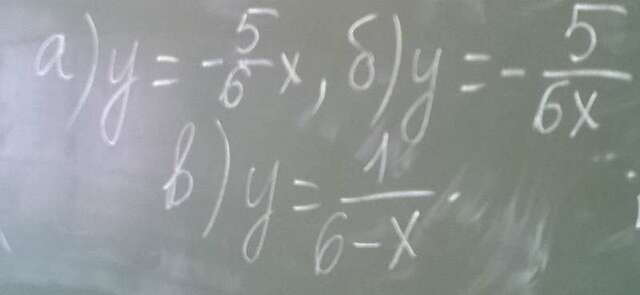 а) y = -5/6 x, б) y = - 5/(6x)
в) y = 1/(6-x).